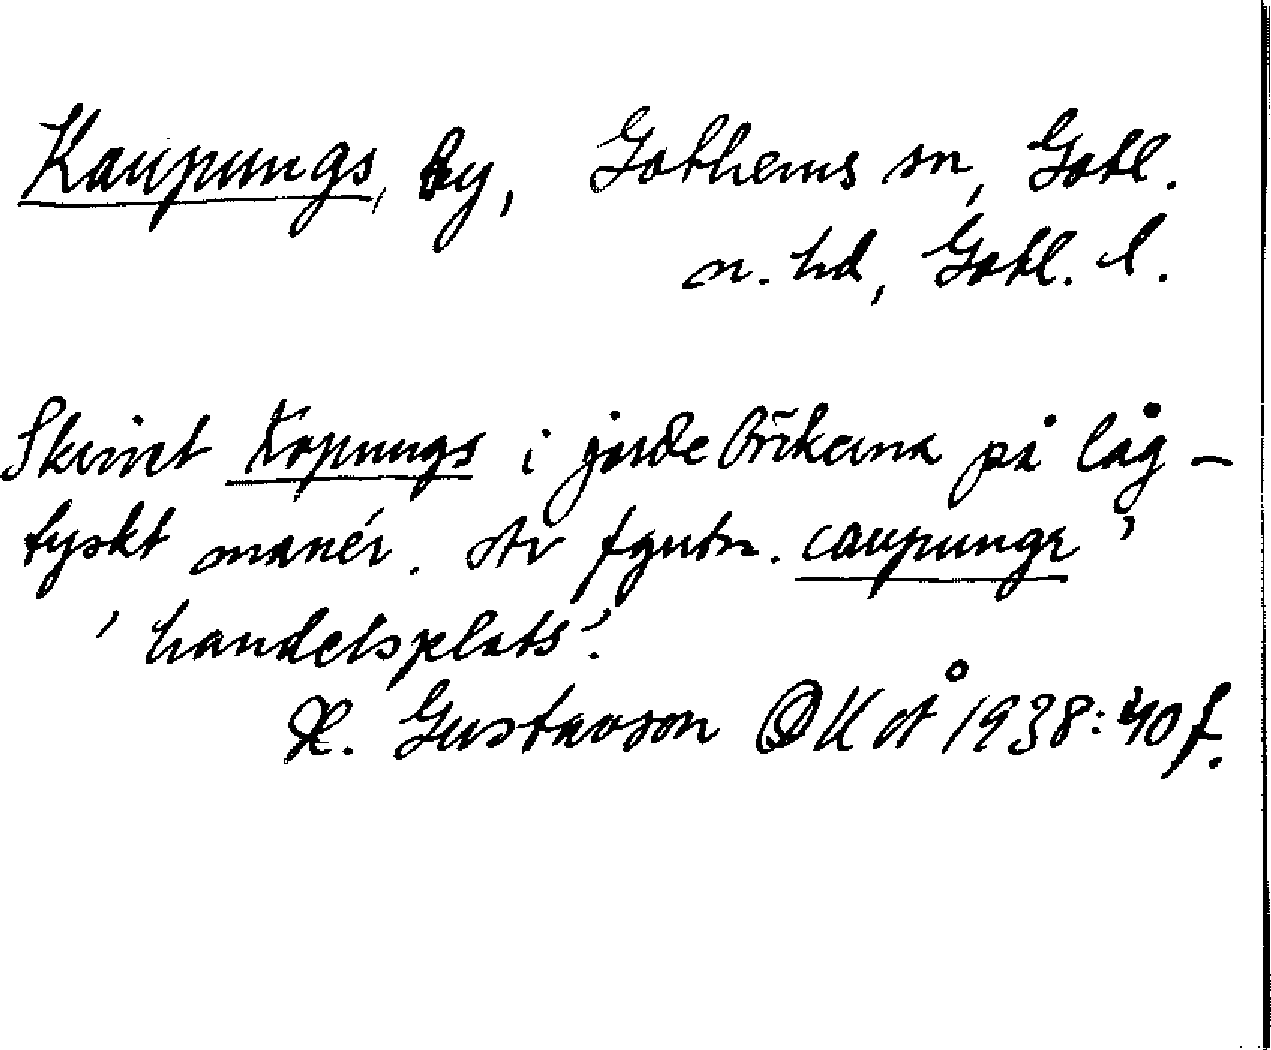 Kaupungs, by, Gothems sn, Gotl.
n. hd, Gotl. l.
Skrivet Kopungs i jordeböckerna på låg-
tyskt manér. Av fgutn. caupungr
'handelsplats'.
H. Gustavson GKÅ 1938:40 f.